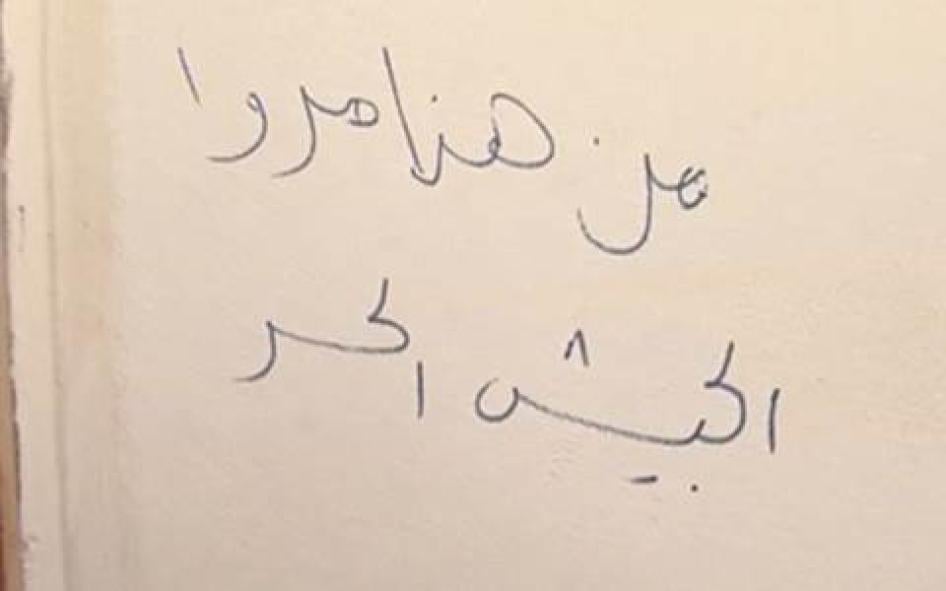 من هنا مروا
الجيش الحر